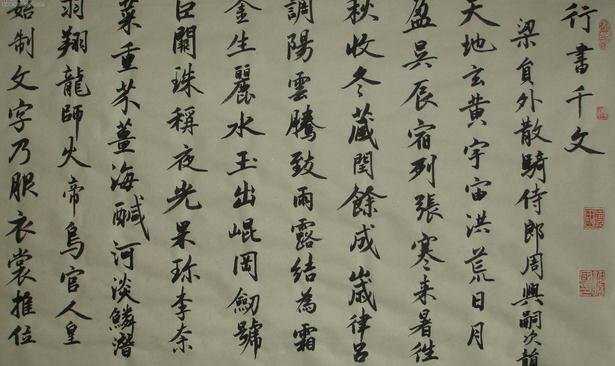 行書千文
梁員外散騎侍郎周興嗣次韻
天地玄黃宇宙洪荒日月
盈昃辰宿列張寒来暑往
秋收冬藏閏餘成歲律呂
調陽雲騰致雨露結為霜
金生麗水玉出崐岡劒號
巨闕珠稱夜光果珎李柰
菜重芥薑海醎河淡鱗潛
羽翔龍師火帝鳥官人皇
始制文字乃服衣裳推位